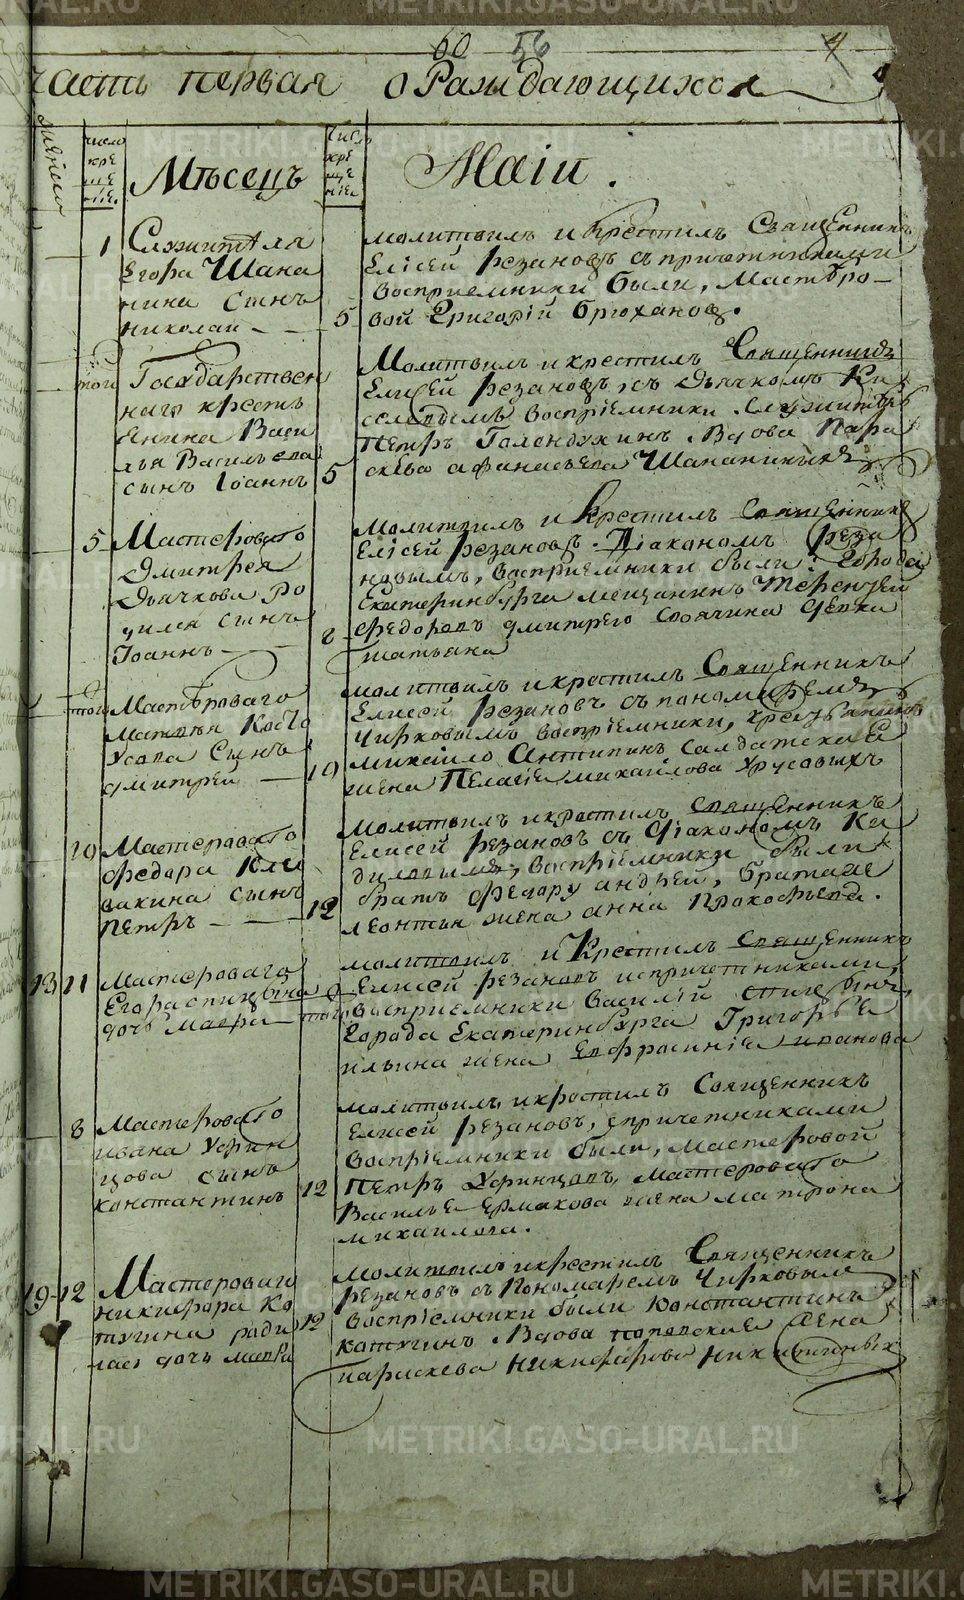 METRIKI.GASO-URAL.RU
60 56
часть первая о Раждающихся
число кре ще нія.
Мѣсецъ
Число кре ще нія
Маіи.
1 Служителя
Егора Шана
нина сынъ
николай 5
молитвилъ и крестилъ Священникъ
Елісей рѣзановъ съ причетниками
восприемники были, Мастеро
вой Григорій Брюхановъ.
той Государствен
наго кресть
енина Васи
лья Васильева
сынъ Іоаннъ 5
Молитвилъ и крестилъ Священникъ
Елисей рѣзановъ съ Дьячкомъ Ки
селевымъ восприемники служитель
Петръ Голендухинъ Вдова Пара
скева афанасьева Шананиныхъ
5 Мастероваго
Дмитрея
Дьячкова Ро
дился сынъ
Іоаннъ 8
Молитвилъ и Крестилъ священникъ
Елісей рѣзановъ Діакономъ Реза
новымъ, восприемники были: Города
Екатеринбурга мещанинъ Терентей
Федоровъ дмитрея девка
татьяна
той Мастероваго
Матвѣя
Усова Сынъ
дмитрей 10
молитвилъ и крестилъ Священникъ
Елисей рѣзановъ съ пономаремъ
Чирковымъ восприемники, крестьянинъ
михайло Антипинъ салдатская
жена Пелагея михайлова Урусовыхъ
10 Мастероваго
федора Кле
вакина сынъ
петръ 12
Молитвилъ и крестилъ священникъ
Елисей рѣзановъ съ діакономъ Ка
диловымъ, восприемники были
братъ федору андрей, брата
леонтья жена анна Прокофьева.
13 11 Мастероваго
Егора спицына
дочь Мавра того
молитвилъ и Крестилъ священникъ
Елисей рѣзановъ и причетниками,
восприемники василій
города Екатеринбурга Григорья
ильина жена Евфросиния иванова
8 Мастероваго
ивана Уфин
цова сынъ
константинъ 12
молитвилъ и крестилъ Священникъ
Елисей рѣзановъ, спричетниками
восприемники были, мастеровой
Петръ Уфинцовъ, мастероваго
Василья Ермакова жена матрона
михайлова.
19 12 Мастероваго
никифора Ко
тугина роди
лась дочь мавра 12
молитвилъ и крестилъ Священникъ
рѣзановъ съ Пономаремъ Чирковымъ
восприемники были Константинъ
котугинъ Вдова
параскева никифорова
METRIKI.GASO-URAL.RU
METRIKI.GASO-URAL.RU